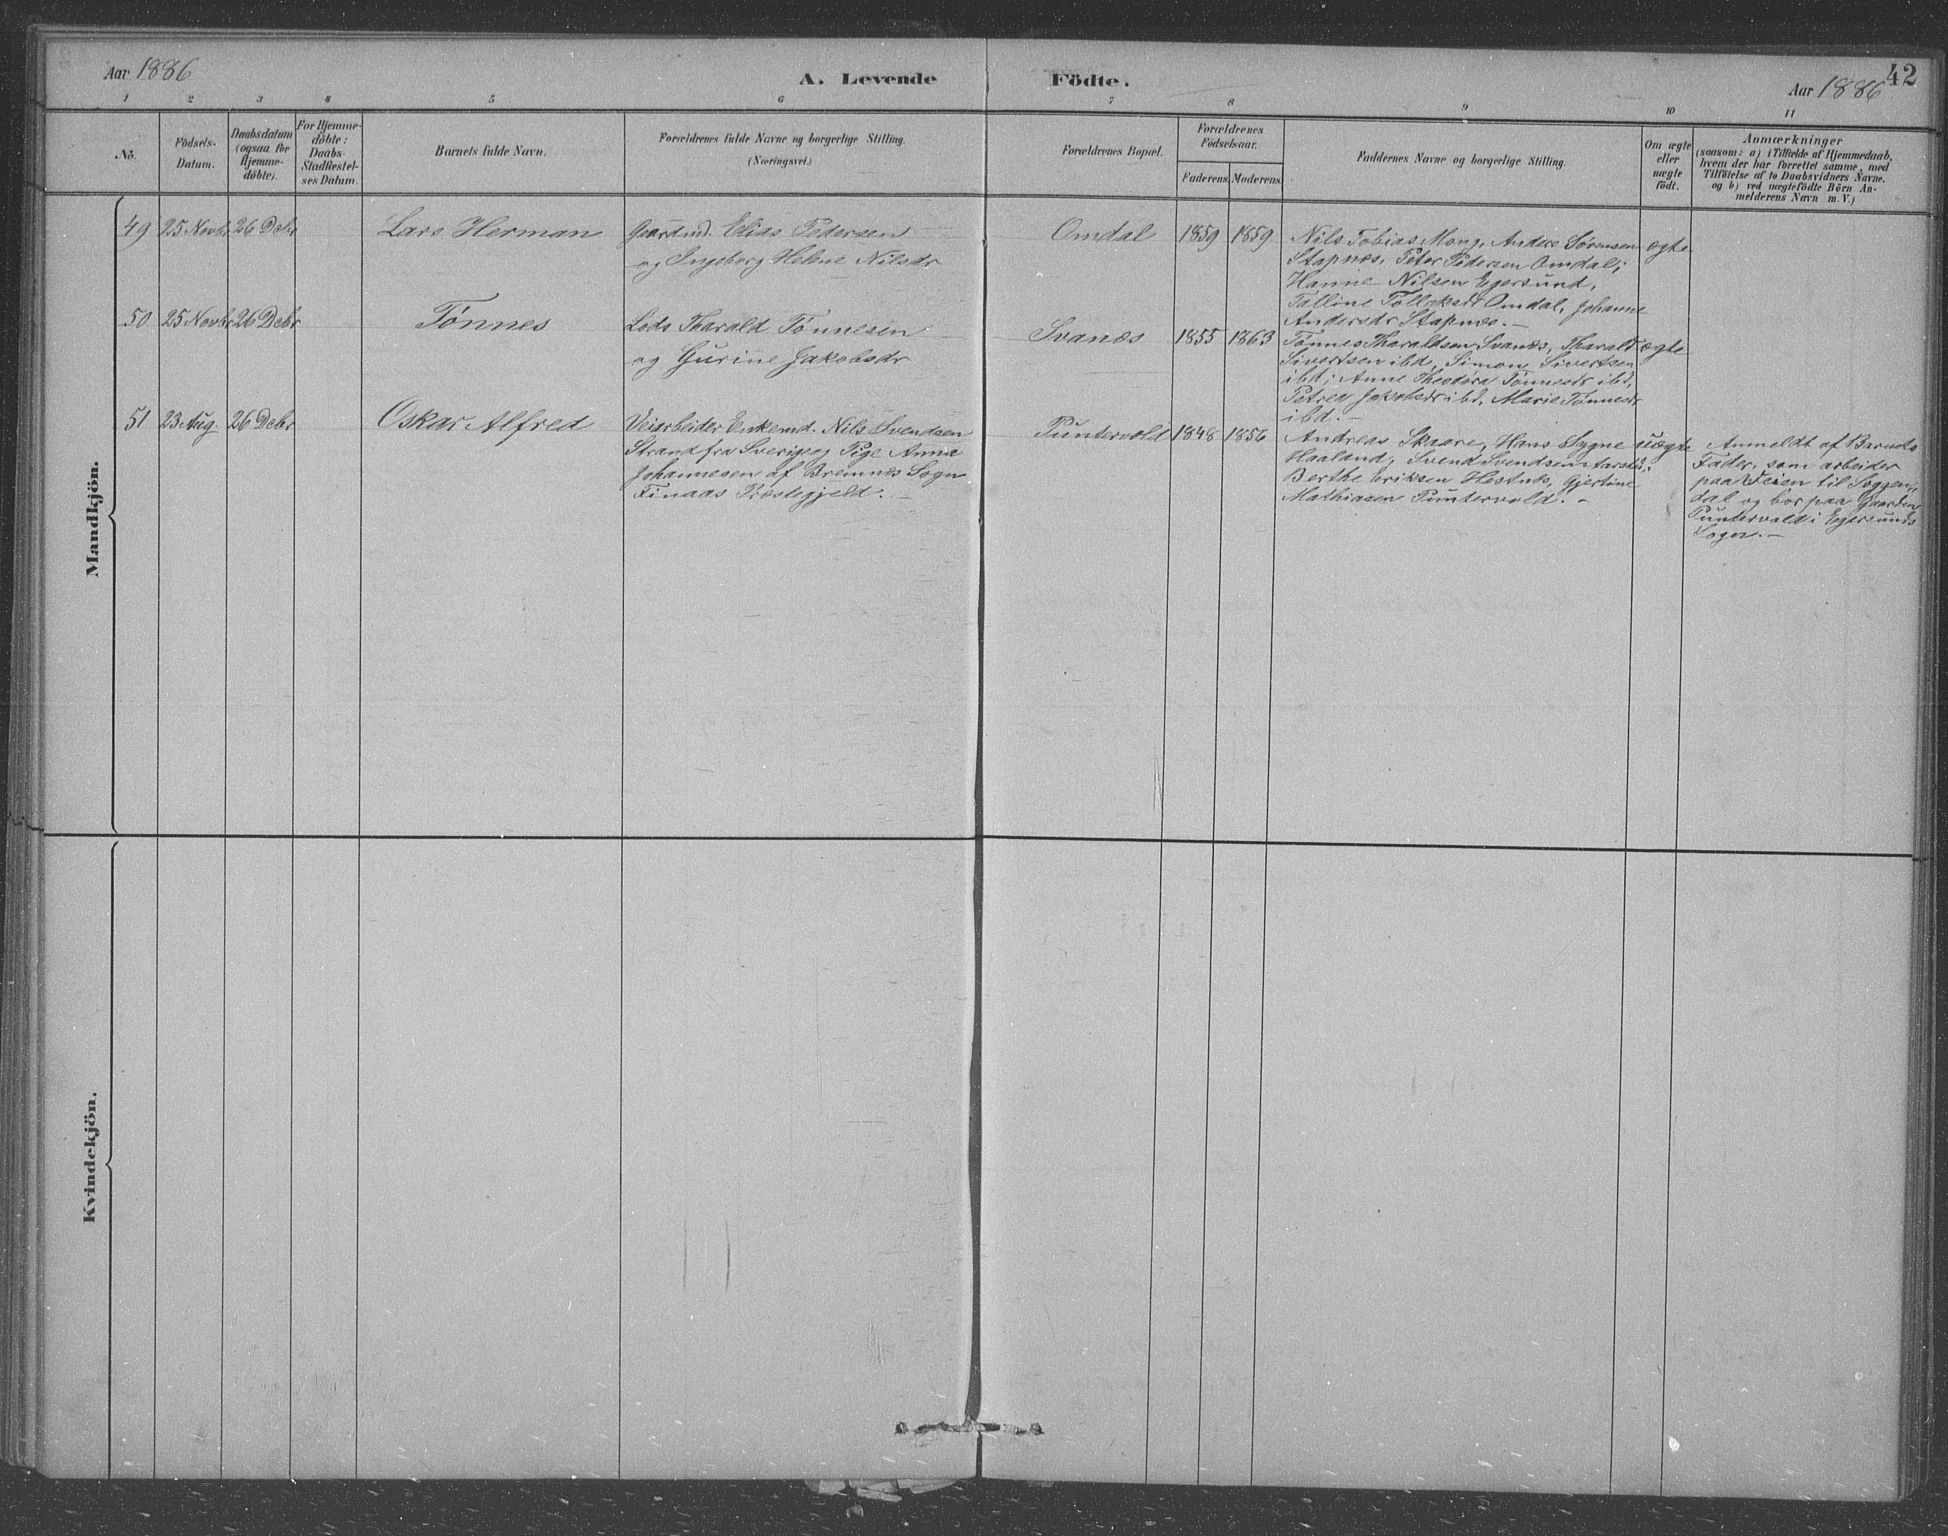 42
Aar 1886
A. Levende Födte.
Aar 1886
1 2 3 4 5 6 7 8 9 10 11
Nö.
Födsels-
Datum.
Daabsdatum
(ogsaa for
Hjemme-
döbte).
For Hjemme-
döbte:
Daabs-
Stadfæstel-
ses Datum.
Barnets fulde Navn.
Forældrenes fulde Navne og borgerlige Stilling.
(Næringsvei.)
Forældrenes Bopæl.
Forældrenes
Födselsaar.
Faderens. Moderens.
Faddernes Navne og borgerlige Stilling.
Om ægte
eller
uægte
födt.
Anmærkninger
(saasom: a) i Tilfælde af Hjemmedaab,
hvem der har forrettet samme, med
Tilföielse af to Daabsvidners Navne.
og b) ved uægtefödte Börn An-
melderens Navn m. V.)
Mandkjön.
49 25 Novbr 26 Debr Lars Herman
Gaardmd. Elias Pedersen
og Ingeborg Helene Nilsdr
Omdal 1859 1859
Nils Tobias Mong, Anders Sörensen
Stapnæs, Peter Pedersen Omdal;
Hanne Nilsen Egersund,
Talline Tollaksdr Omdal, Johanne
Andersdr Stapnæs.-
ægte
50 25 Novbr 26 Debr Tönnes
Lods Tharald Tönnesen
og Gurine Jakobsdr
Svanæs 1855 1863
Tönnes Tharaldsen Svanæs, Tharald
Sivertsen ibd, Simon Sivertsen
ibd; Anne Theodora Tönnesdr ibd,
Petrea Jakobsdr ibd, Marie Tönnesdr
ibd.-
ægte
51 23 Aug. 26 Debr Oskar Alfred
Veiarbeider Enkemd. Nils Svendsen
Strand fra Sverige og Pige Anna
Johannesen af Bremnes Sogn
Finaas Præstegjeld.-
Puntervold 1848 1856
Andreas Skaare, Hans Sygne
Haaland; Svend Svendsen
Berthe Eriksen Hestnæs, Gjertine
Mathiasen Puntervold.-
uægte
Anmeldt af Barnets
Fader, som arbeider
paa Veien til Soggen-
dal og bor paa Gaarden
Puntervold i Egersunds
Sogn.-
Kvindekjön.